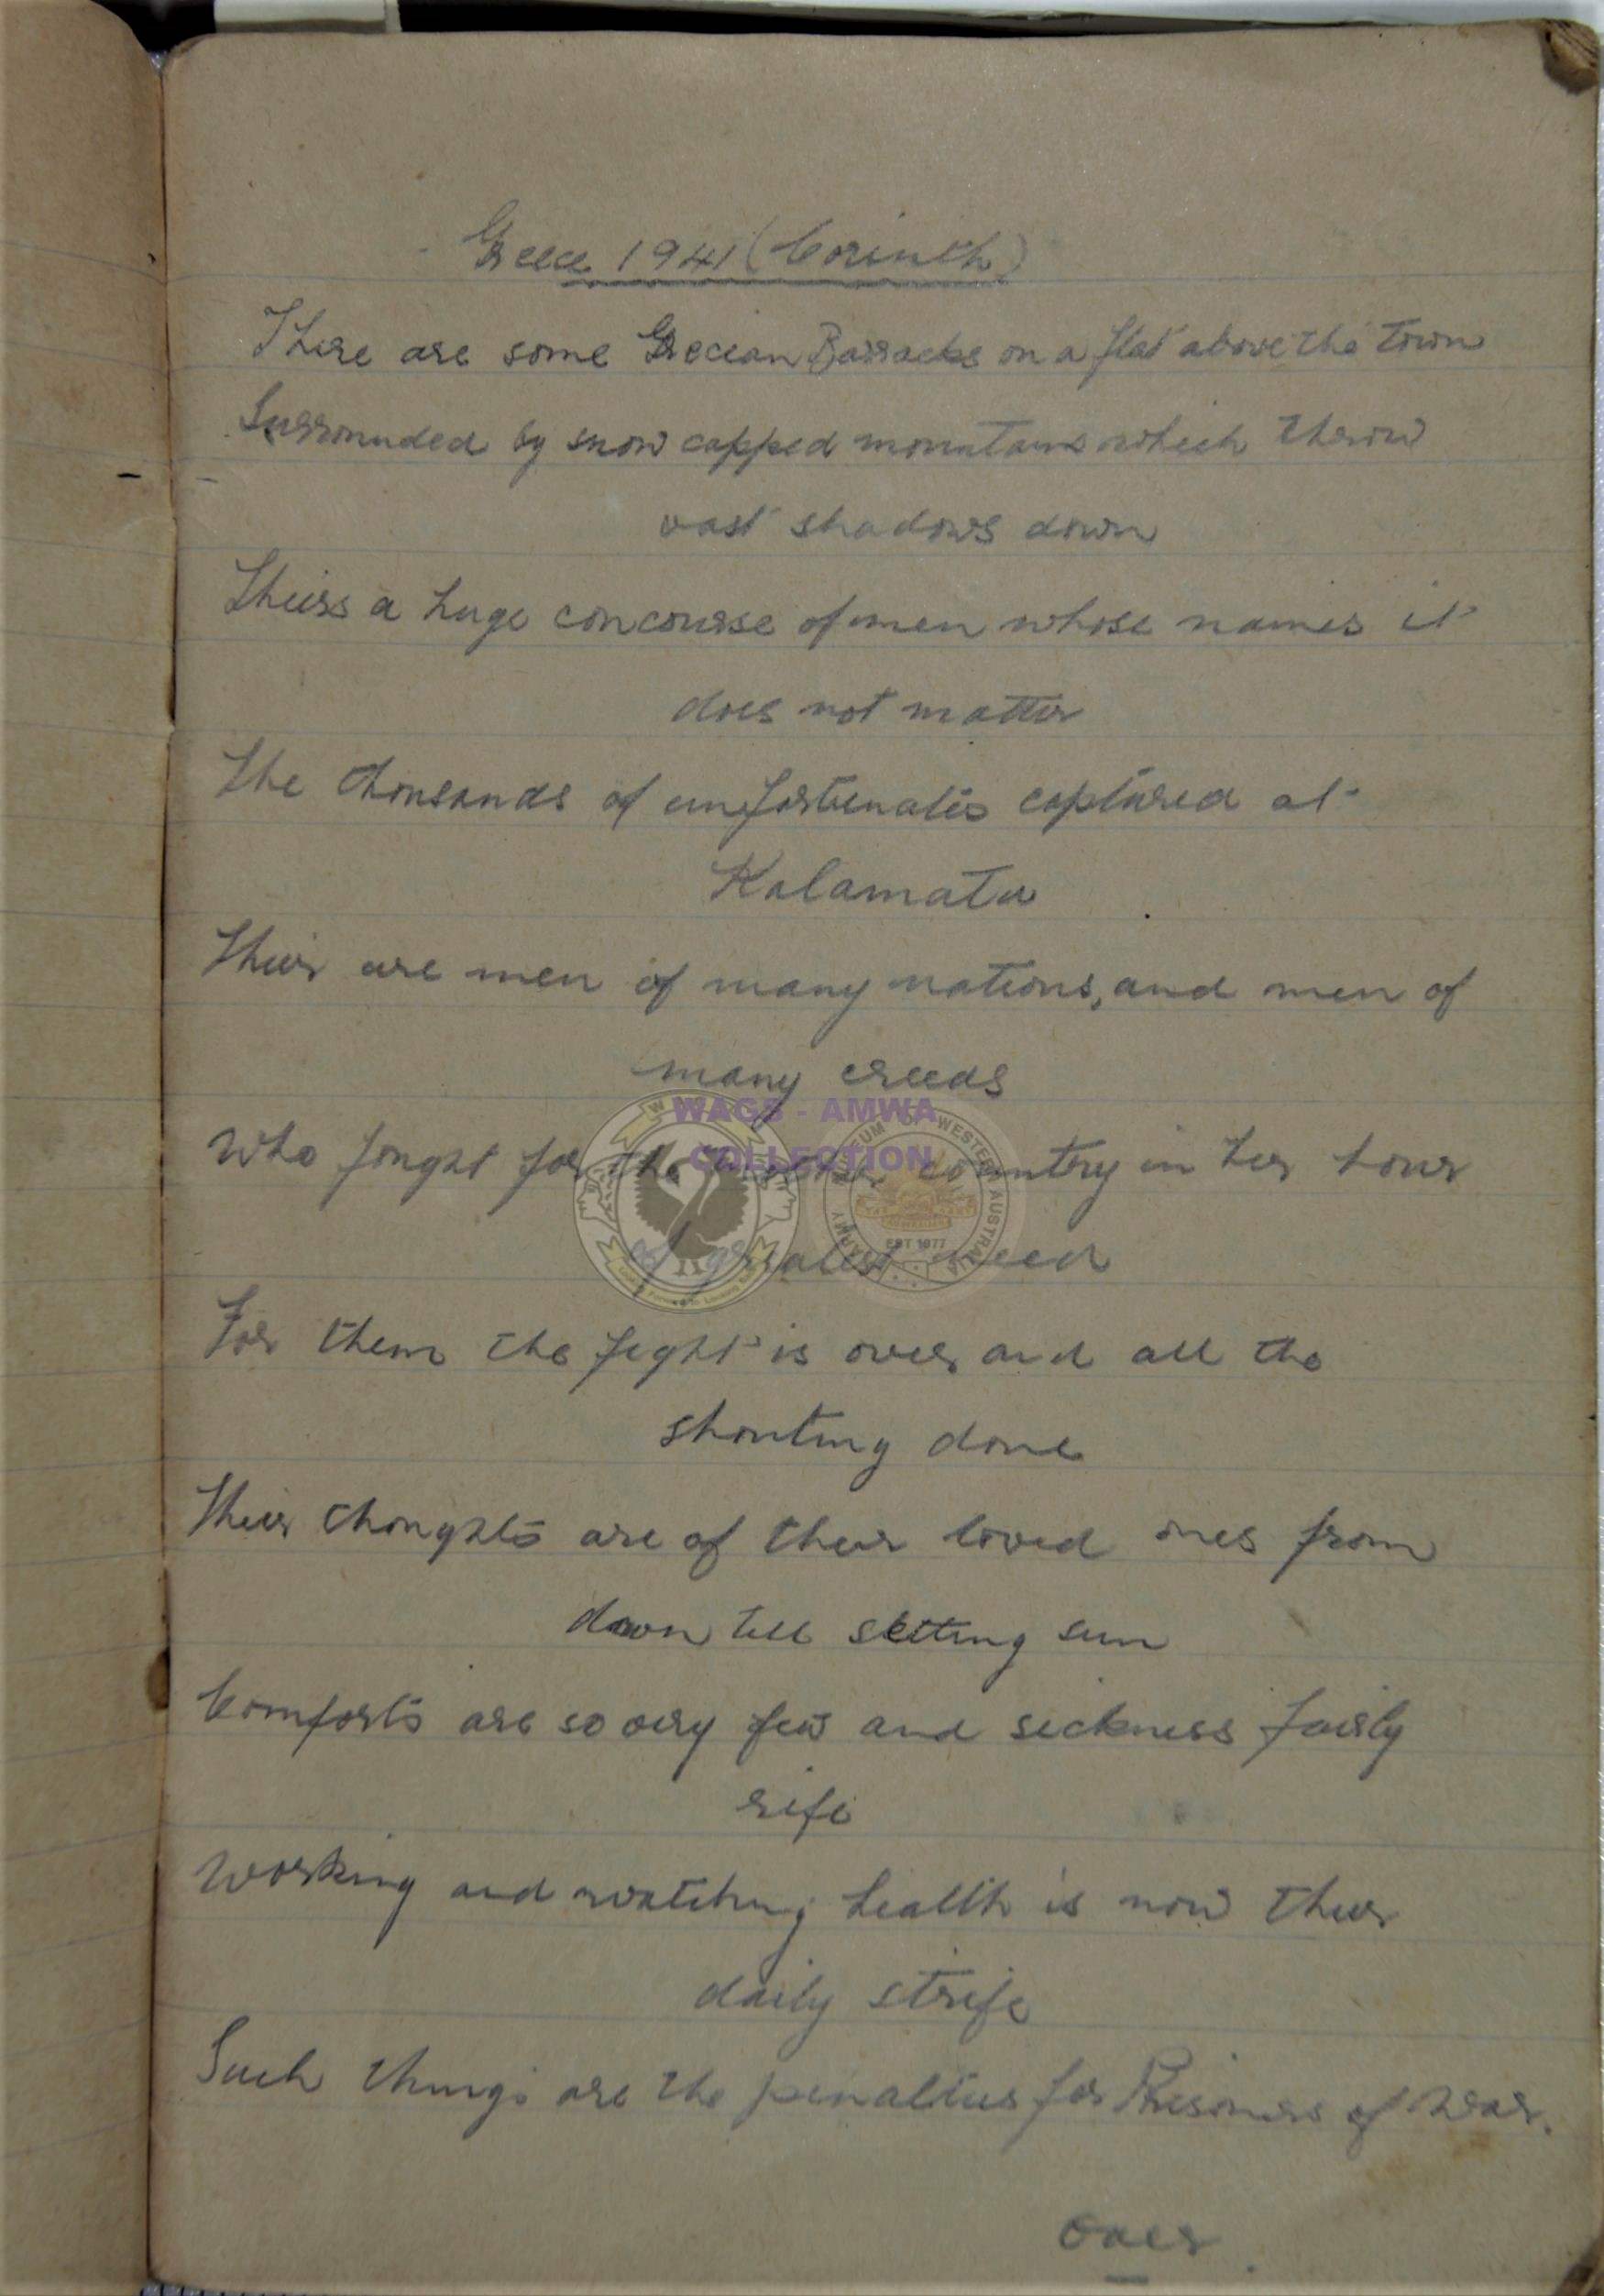 Greece 1941 (Corinth)
There are some Grecian Barracks on a flat above the town
Surrounded by snow capped mountains which throw
vast shadows down
Theirs a huge concourse of men whose names it
does not matter
The thousands of unfortunates captured at
Kalamata
Their are men of many nations, and men of
many creeds
WAGS - AMWA
COLLECTION
Who fought for the country in her hour
of greatest need
EST 1977
For them the fight is over and all the
shouting done
Their thoughts are of their loved ones from
dawn till setting sun
Comforts are so very few and sickness fairly
rife
Working and watching health is now their
daily strife
Such things are the penalties for Prisoners of War.
Over.